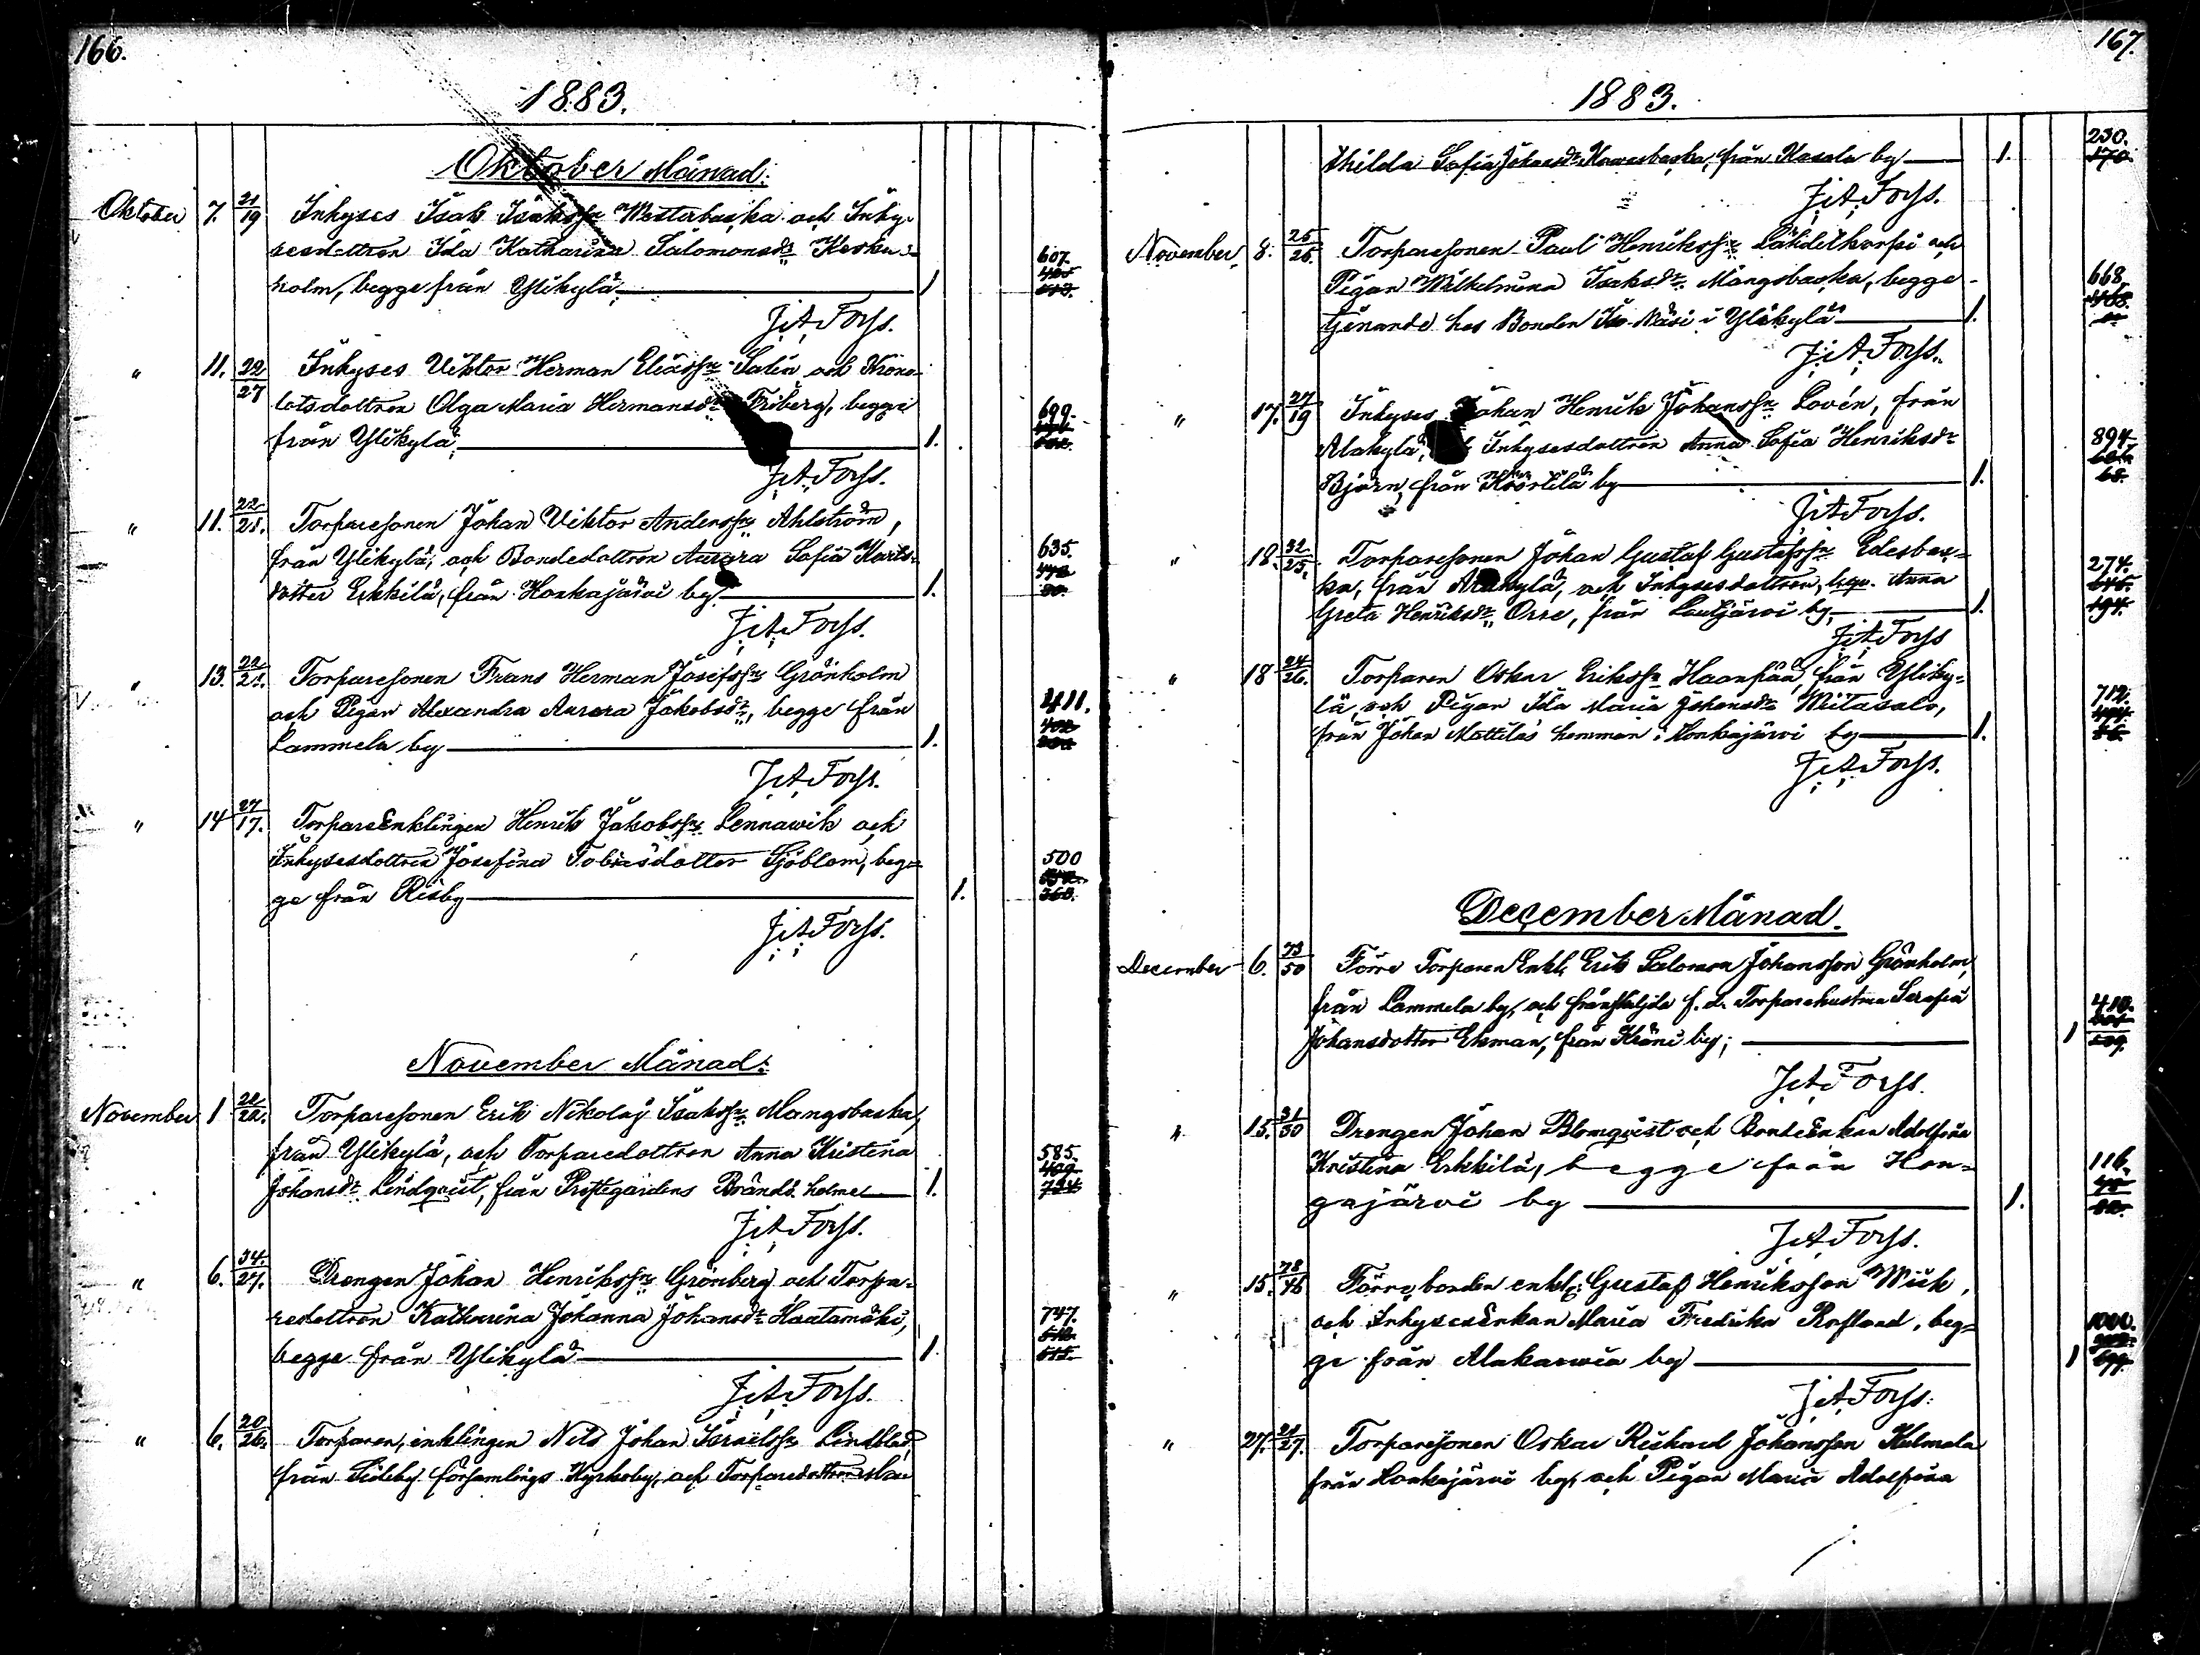 166.
1883.
Oktober Månad.
Oktober 7. 21/19 Inhyses Isak Isaksson Westerbacka och Inhy-
sesdottren Ida Katharina Salomonsdr
holm, begge från Ylikylä, 1 607.
J. A. Forss.
" 11. 22/27 Inhyses Viktor Herman Eliasson Salin och Krono-
lotsdottren Olga Maria Hermansdr Friberg, begge
från Ylikylä, 1. 699.
J. A. Forss.
" 11. 22/21. Torparesonen Johan Viktor Andersson Ahlström,
från Ylikylä, och Bondedottren Aurora Sofia Karls-
dotter Erkkilä, från Honkajärvi by. 1. 635.
J. A. Forss.
" 13. 22/21. Torparesonen Frans Herman Josefsson Grönholm
och Pigan Alexandra Aurora Jakobsdr, begge från
Lammela by 1. 411.
J. A. Forss.
" 14 27/17. Torpareenklingen Henrik Jakobsson Lennawik och
Inhysesdottren Josefina Tobiasdotter Sjöblom, beg-
ge från Risby 1. 500
J. A. Forss.
November Månad.
November 1 22/22. Torparesonen Erik Nikolaj Isaksson Mangsbacka,
från Ylikylä, och Torparedottren Anna Kristina
Johansdr Lindqvist, från Prestegårdens Brändö holme 1. 585.
J. A. Forss.
" 6. 34./27. Drengen Johan Henriksson Grönberg och Torpa-
redottren Katharina Johanna Johansdr Haatamäki,
begge från Ylikylä 1. 747.
J. A. Forss.
" 6. 20/26. Torparen, enklingen Nils Johan Israelsson Lindblad
från Sideby församlings Kyrkoby, och Torparedottren Ma-
167.
1883.
thilda Sofia Johansdr från Kasala by 1. 230.
J. A. Forss.
November 8. 25/25. Torparesonen Paul Henriksson Lähdekorpi och
Pigan Wilhelmina Isaksdr Mangsbacka, begge
tjenande hos Bonden Iso-Näsi i Ylikylä 1. 668.
J. A. Forss.
" 17. 27/19 Inhyses Johan Henrik Johansson Lovén, från
Alakylä, Inhysesdottren Anna Sofia Henriksdr
Björn, från Köörtilä by 1. 894.
J. A. Forss.
" 18. 32/25. Torparesonen Johan Gustaf Gustafsson Edesbac-
ka, från Alakylä, och Inhysesdottren, Anna
Greta Henriksdr Orre, från Lautjärvi by, 1. 274.
J. A. Forss
" 18 24/26. Torparen Oskar Eriksson Haanpää, från Yliky-
lä, och Pigan Ida Maria Johansdr Wiitasalo,
från Johan Mattilas hemman i Honkajärvi by 1. 712.
J. A. Forss.
December Månad.
December 6. 73/50 Förre Torparen Enkl. Erik Salomon Johansson Grönholm,
från Lammela by, och frånskiljda f. d. Torparehustrun Serafia
Johansdotter Ekman, från by; 1 410.
J. A. Forss.
" 15. 31/30 Drengen Johan Blomqvist och Bondeenkan Adolfina
Kristina Erkkilä, begge från Hon-
gajärvi by 1. 116.
J. A. Forss.
" 15. 78/46 Förre bonden enkl. Gustaf Henriksson Wiik,
och Inhysesenkan Maria Fredrika Rosslund, beg-
ge från Alakarwia by 1 1000.
J. A. Forss.
" 27. 21/27. Torparesonen Oskar Rickard Johansson Kulmala
från Honkajärvi by, och Pigan Maria Adolfina